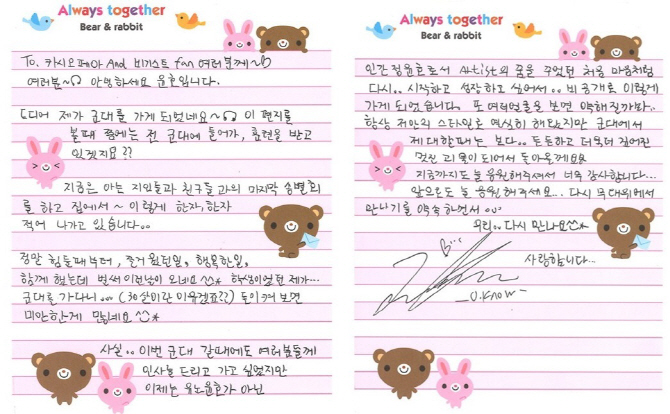 Always together
Bear & rabbit
To. 카시오페아 And 비기스트 fan 여러분께~
여러분~ 안녕하세요 윤호입니다.
드디어 제가 군대를 가게 되었네요~ 이 편지를
볼때 쯤에는 전 군대에 들어가, 훈련을 받고
있겠지요??
지금은 아는 지인들과 친구들과의 마지막 송별회
를 하고 집에서~ 이렇게 한자, 한자
적어 나가고 있습니다..
정말 힘들때부터, 즐거웠던일, 행복한일,
함께 했는데 벌써 이런날이 오네요^^* 학생이었던 제가...
군대를 가다니... (30살이란 미울겠죠??) 돌이켜 보면
미안한게 많네요^^*
사실.. 이번 군대 갈때에도 여러분들께
인사를 드리고 가고 싶었지만
이제는 유노윤호가 아닌
Always together
Bear & rabbit
인간 정윤호로서 Artist의 꿈을 꾸었던 처음 마음처럼
다시.. 시작하고 성장하고 싶어서.. 비공개로 이렇게
가게 되었습니다. 또 여러분들을 보면 약해질까봐..
항상 저만의 스타일로 열심히 해왔지만 군대에서
제대할때는 보다.. 든든하고 더욱더 짙어진
멋진 리더이 되어서 돌아올께요
지금까지도 늘 응원해주셔서 너무 감사합니다...
앞으로도 늘 응원해주세요... 다시 무대위에서
만나기를 약속하면서
우리.. 다시 만나요^^*
B...
사랑합니다...
-U.KNOW-